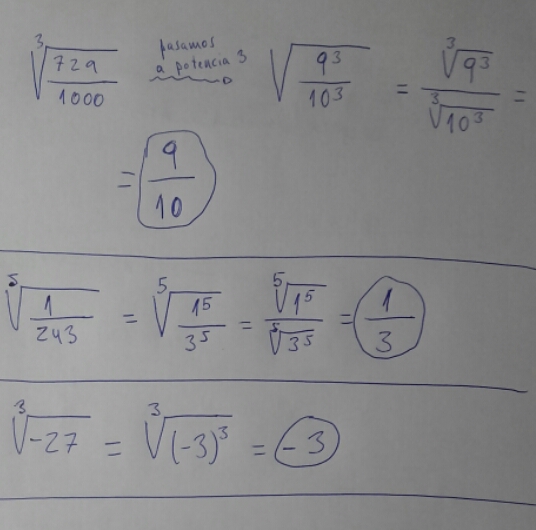 ∛(729/1000) pasamos a potencia 3 → √(9³/10³) = ∛9³/∛10³ =
= 9/10
⁵√(1/243) = ⁵√(1⁵/3⁵) = ⁵√1⁵/⁵√3⁵ = 1/3
∛-27 = ∛(-3)³ = -3